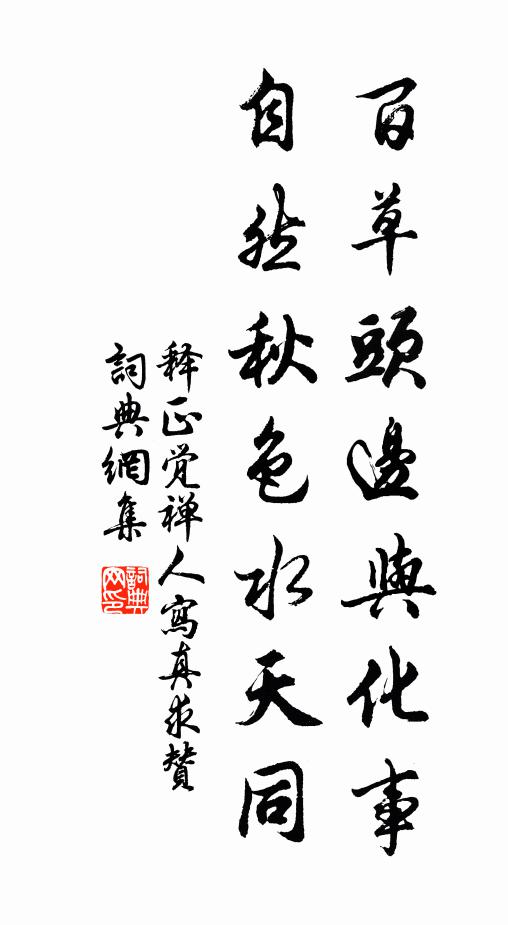 百草頭邊與化事
自然秋色水天同
释正覚禅人寫真求贊
詞典網集
詞典网印